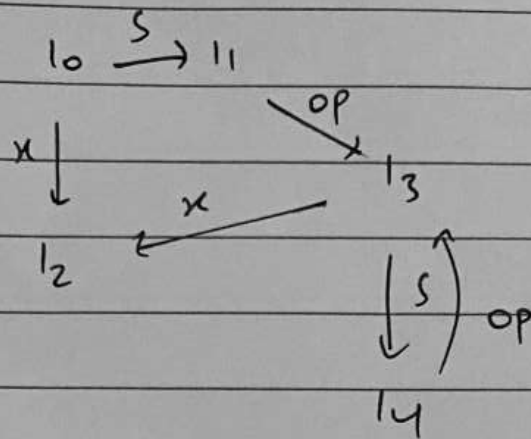 I0 S I1
op
x I3
x
I2
S op
I4